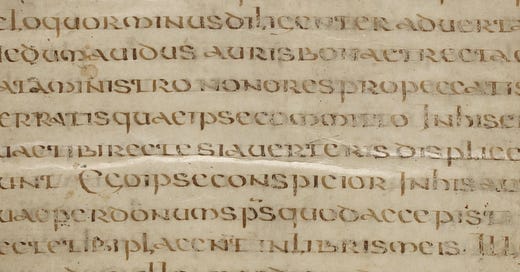 eloquorminusdiligenteraduerta
nedumauidus aurisbonaetrecta
ataministro nonorespropeccatis
erratisquaeipsecommitto Inhise
uaetibirectesiauerterisdisplice
unt Egoipseconspicior Inhisau
uaeperdonumspsquodaccepist
ectetibiplacent Inlibrismeis Ill